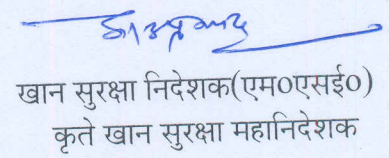 खान सुरक्षा निदेशक(एम०एसई०)
कृते खान सुरक्षा महानिदेशक